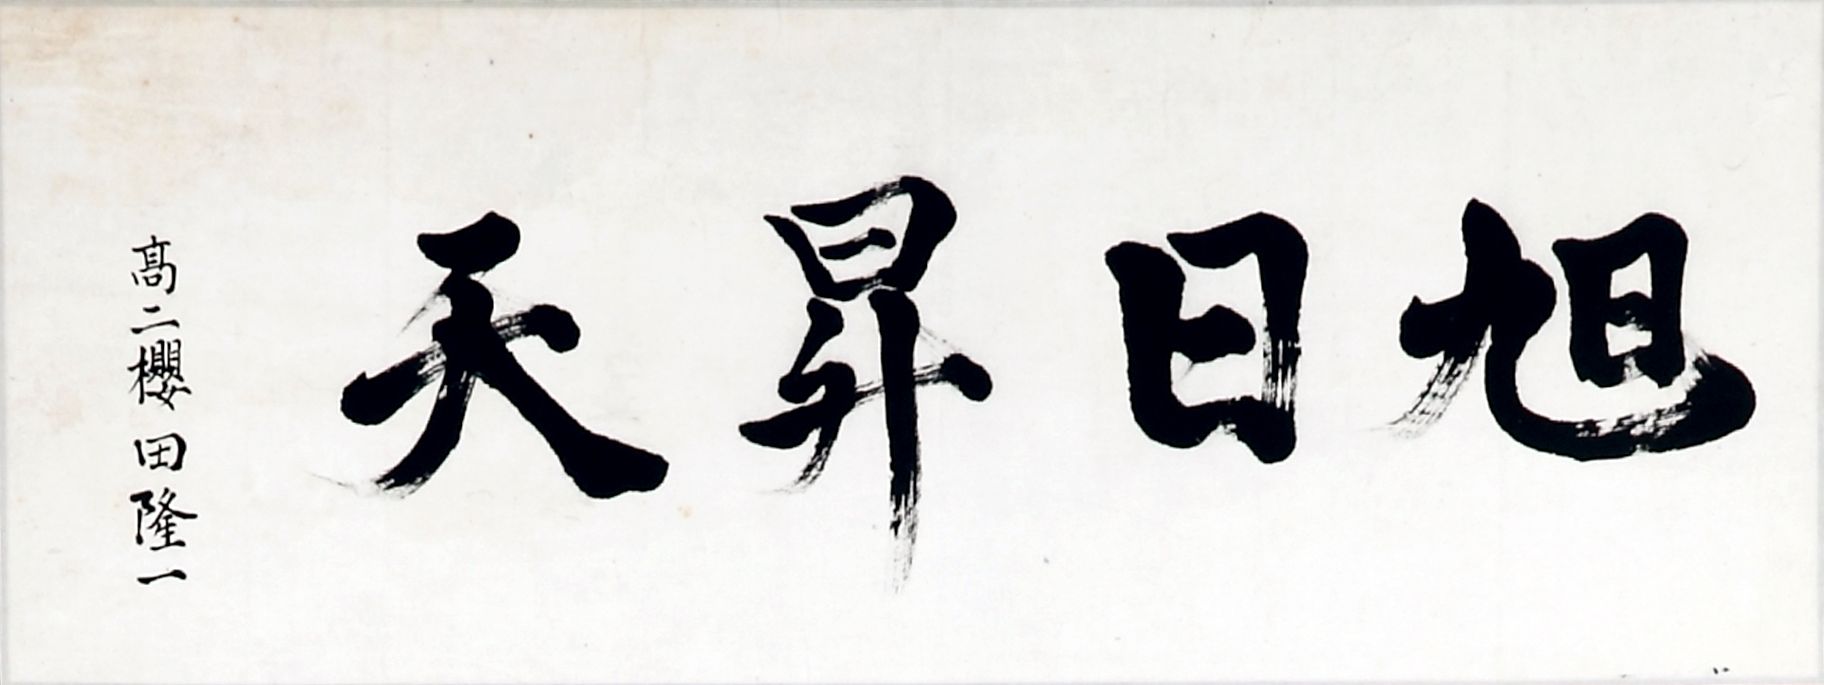 旭日昇天
髙二櫻田隆一